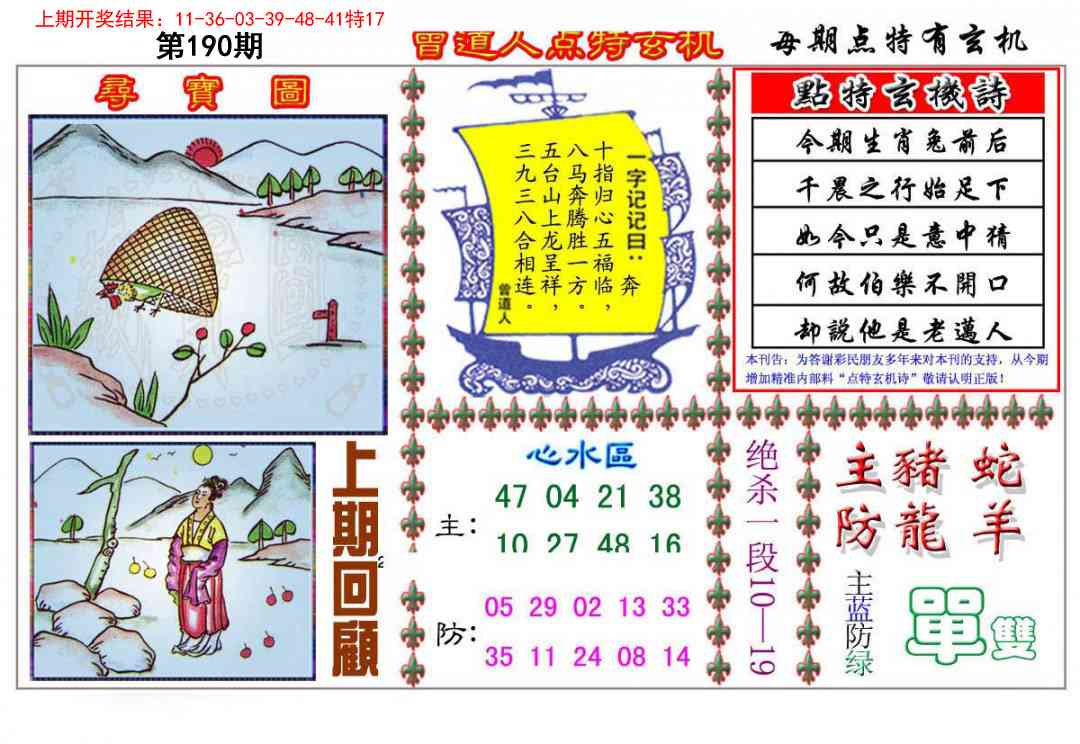 上期开奖结果：11-36-03-39-48-41特17
第190期
曾道人点特玄机
每期点特有玄机
尋寶圖
一字记记曰：奔
十指归心五福临，
八马奔腾胜一方。
五台山上龙呈祥，
三九三八合相连。
曾道人
點特玄機詩
今期生肖兔前后
千晨之行始足下
如今只是意中猜
何故伯樂不開口
却說他是老邁人
本刊告：为答谢彩民朋友多年来对本刊的支持，从今期
增加精准内部料“点特玄机诗”敬请认明正版！
上期回顧
2
心水區
主：
47 04 21 38
10 27 48 16
防：
05 29 02 13 33
35 11 24 08 14
绝杀一段10—19
主豬蛇
防龍羊
主蓝防绿
單雙